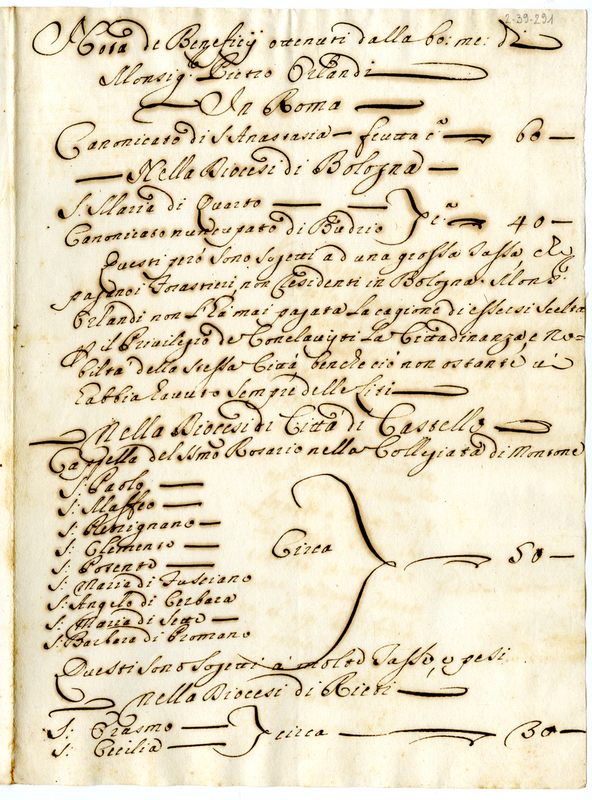 2-39-291
Nota de Beneficij ottenuti dalla bo: me: di
Monsig.r Pietro Orlandi
In Roma
Canonicato di S. Anastasia — frutta 60 —
— Nella Diocesi di Bologna —
S. Maria di Quarto — —
Canonicato nuncupato di Budrio 40 —
Questi però sono sogetti ad una grossa Tassa che
pagano i Forastieri non residenti in Bologna. Mons.r
Orlandi non l'ha mai pagata la cagione di essersi scelta
p il Privilegio de Conclavisti la Cittadinanza, e no=
biltà della stessa Città, benche ciò non ostante vi
habbia havuto sempre delle liti —
— Nella Diocesi di Città di Castello —
Cappella del SSmo Rosario nella Collegiata di Montone
S: Paolo —
S: Maffeo —
S: Petrignano —
S: Clemente —
S: —
S: Maria di Fusciano
S: Angelo di Cerbara
S: Maria di Sette —
S: Barbara di Promano
Circa 50 —
Questi sono sogetti a molte Tasse, e pesi
— nella Diocesi di Rieti —
S: Erasmo —
S: Cecilia —
circa — 30 —